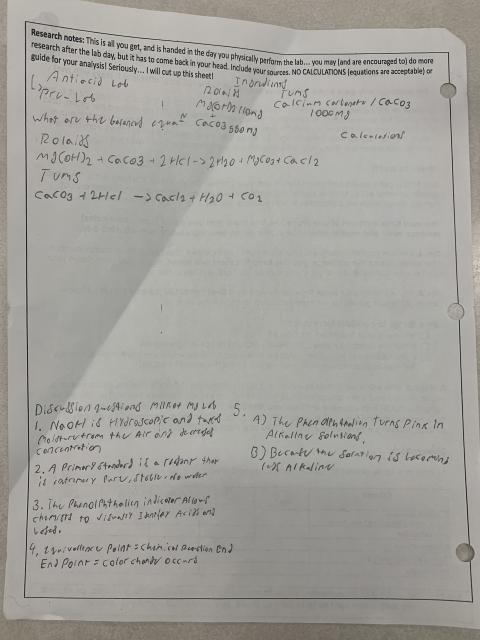 Research notes: This is all you get, and is handed in the day you physically perform the lab... you may (and are encouraged to) do more
research after the lab day, but it has to come back in your head. Include your sources. NO CALCULATIONS (equations are acceptable) or
guide for your analysis! Seriously... I will cut up this sheet!
Antiacid Lob
Pre-Lob
Rolaids
Tums
Mg(OH)2 110mg
Calcium carbonate / CaCO3
1000mg
What are the balanced equan
+
CaCO3 550mg
Calculations
Rolaids
Mg(OH)2 + CaCO3 + 2HCl -> 2H2O + MgCO3 + CaCl2
Tums
CaCO3 + 2HCl -> CaCl2 + H2O + CO2
Discussion questions
1. NaOH is Hydroscopic and takes
Moisture from the Air and
concentration
2. A Primary Standard is a that
is extremely Pure, Stable, no water
3. The Phenolphthalien indicator Allows
chemists to visually Identify Acids and
bases.
4. Equivalence Point = Chemical Reaction End
End Point = Color change occurs
5.
A) The Phenolphthalien Turns Pink In
Alkaline solutions.
B) Because the Solution is becoming
less Alkaline